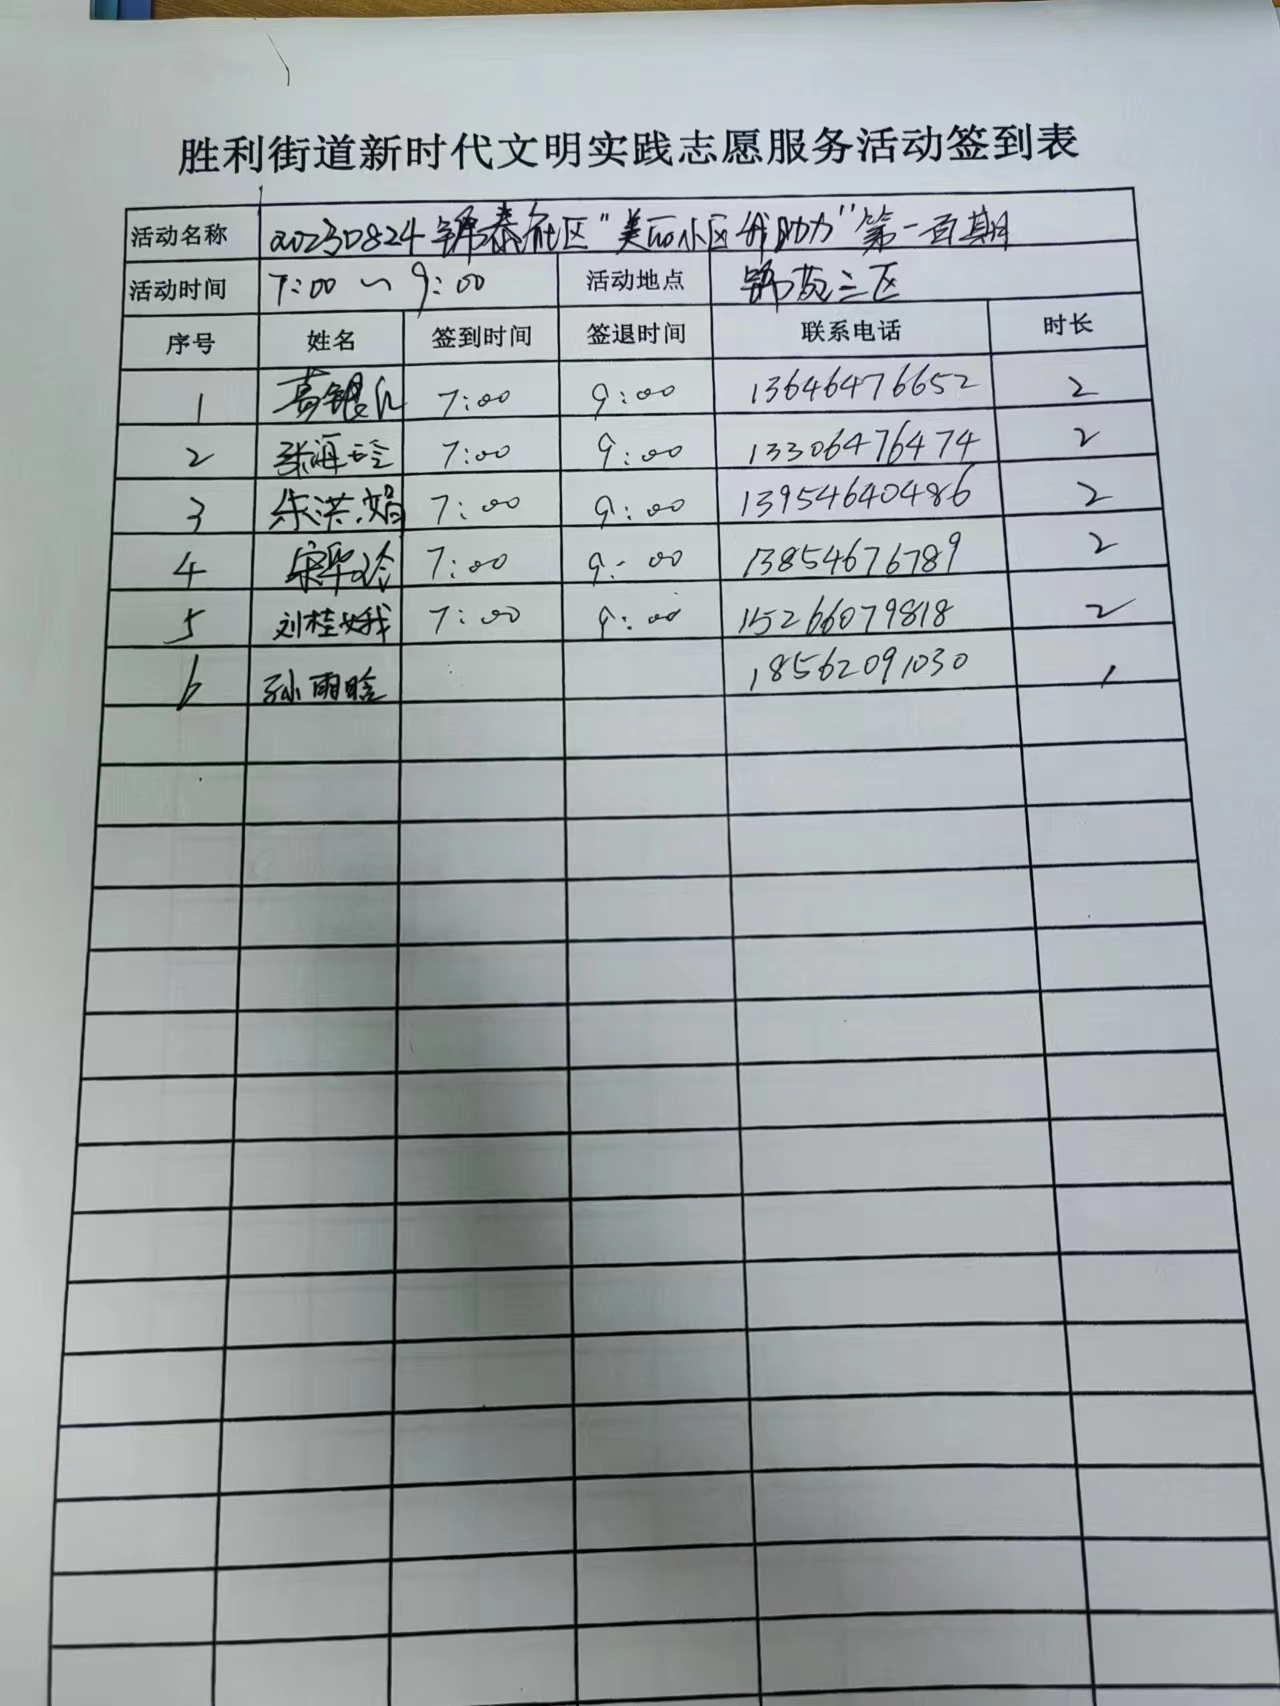 胜利街道新时代文明实践志愿服务活动签到表
活动名称 20230824锦泰社区"美丽小区我助力"第一百期
活动时间 7:00~9:00 活动地点 锦苑三区
序号 姓名 签到时间 签退时间 联系电话 时长
1 葛银 7:00 9:00 13646476652 2
2 张海玲 7:00 9:00 13306476474 2
3 朱洪娟 7:00 9:00 13954640486 2
4 宋翠玲 7:00 9:00 13854676789 2
5 刘桂娥 7:00 9:00 15266079818 2
6 孙雨晗 18562091030